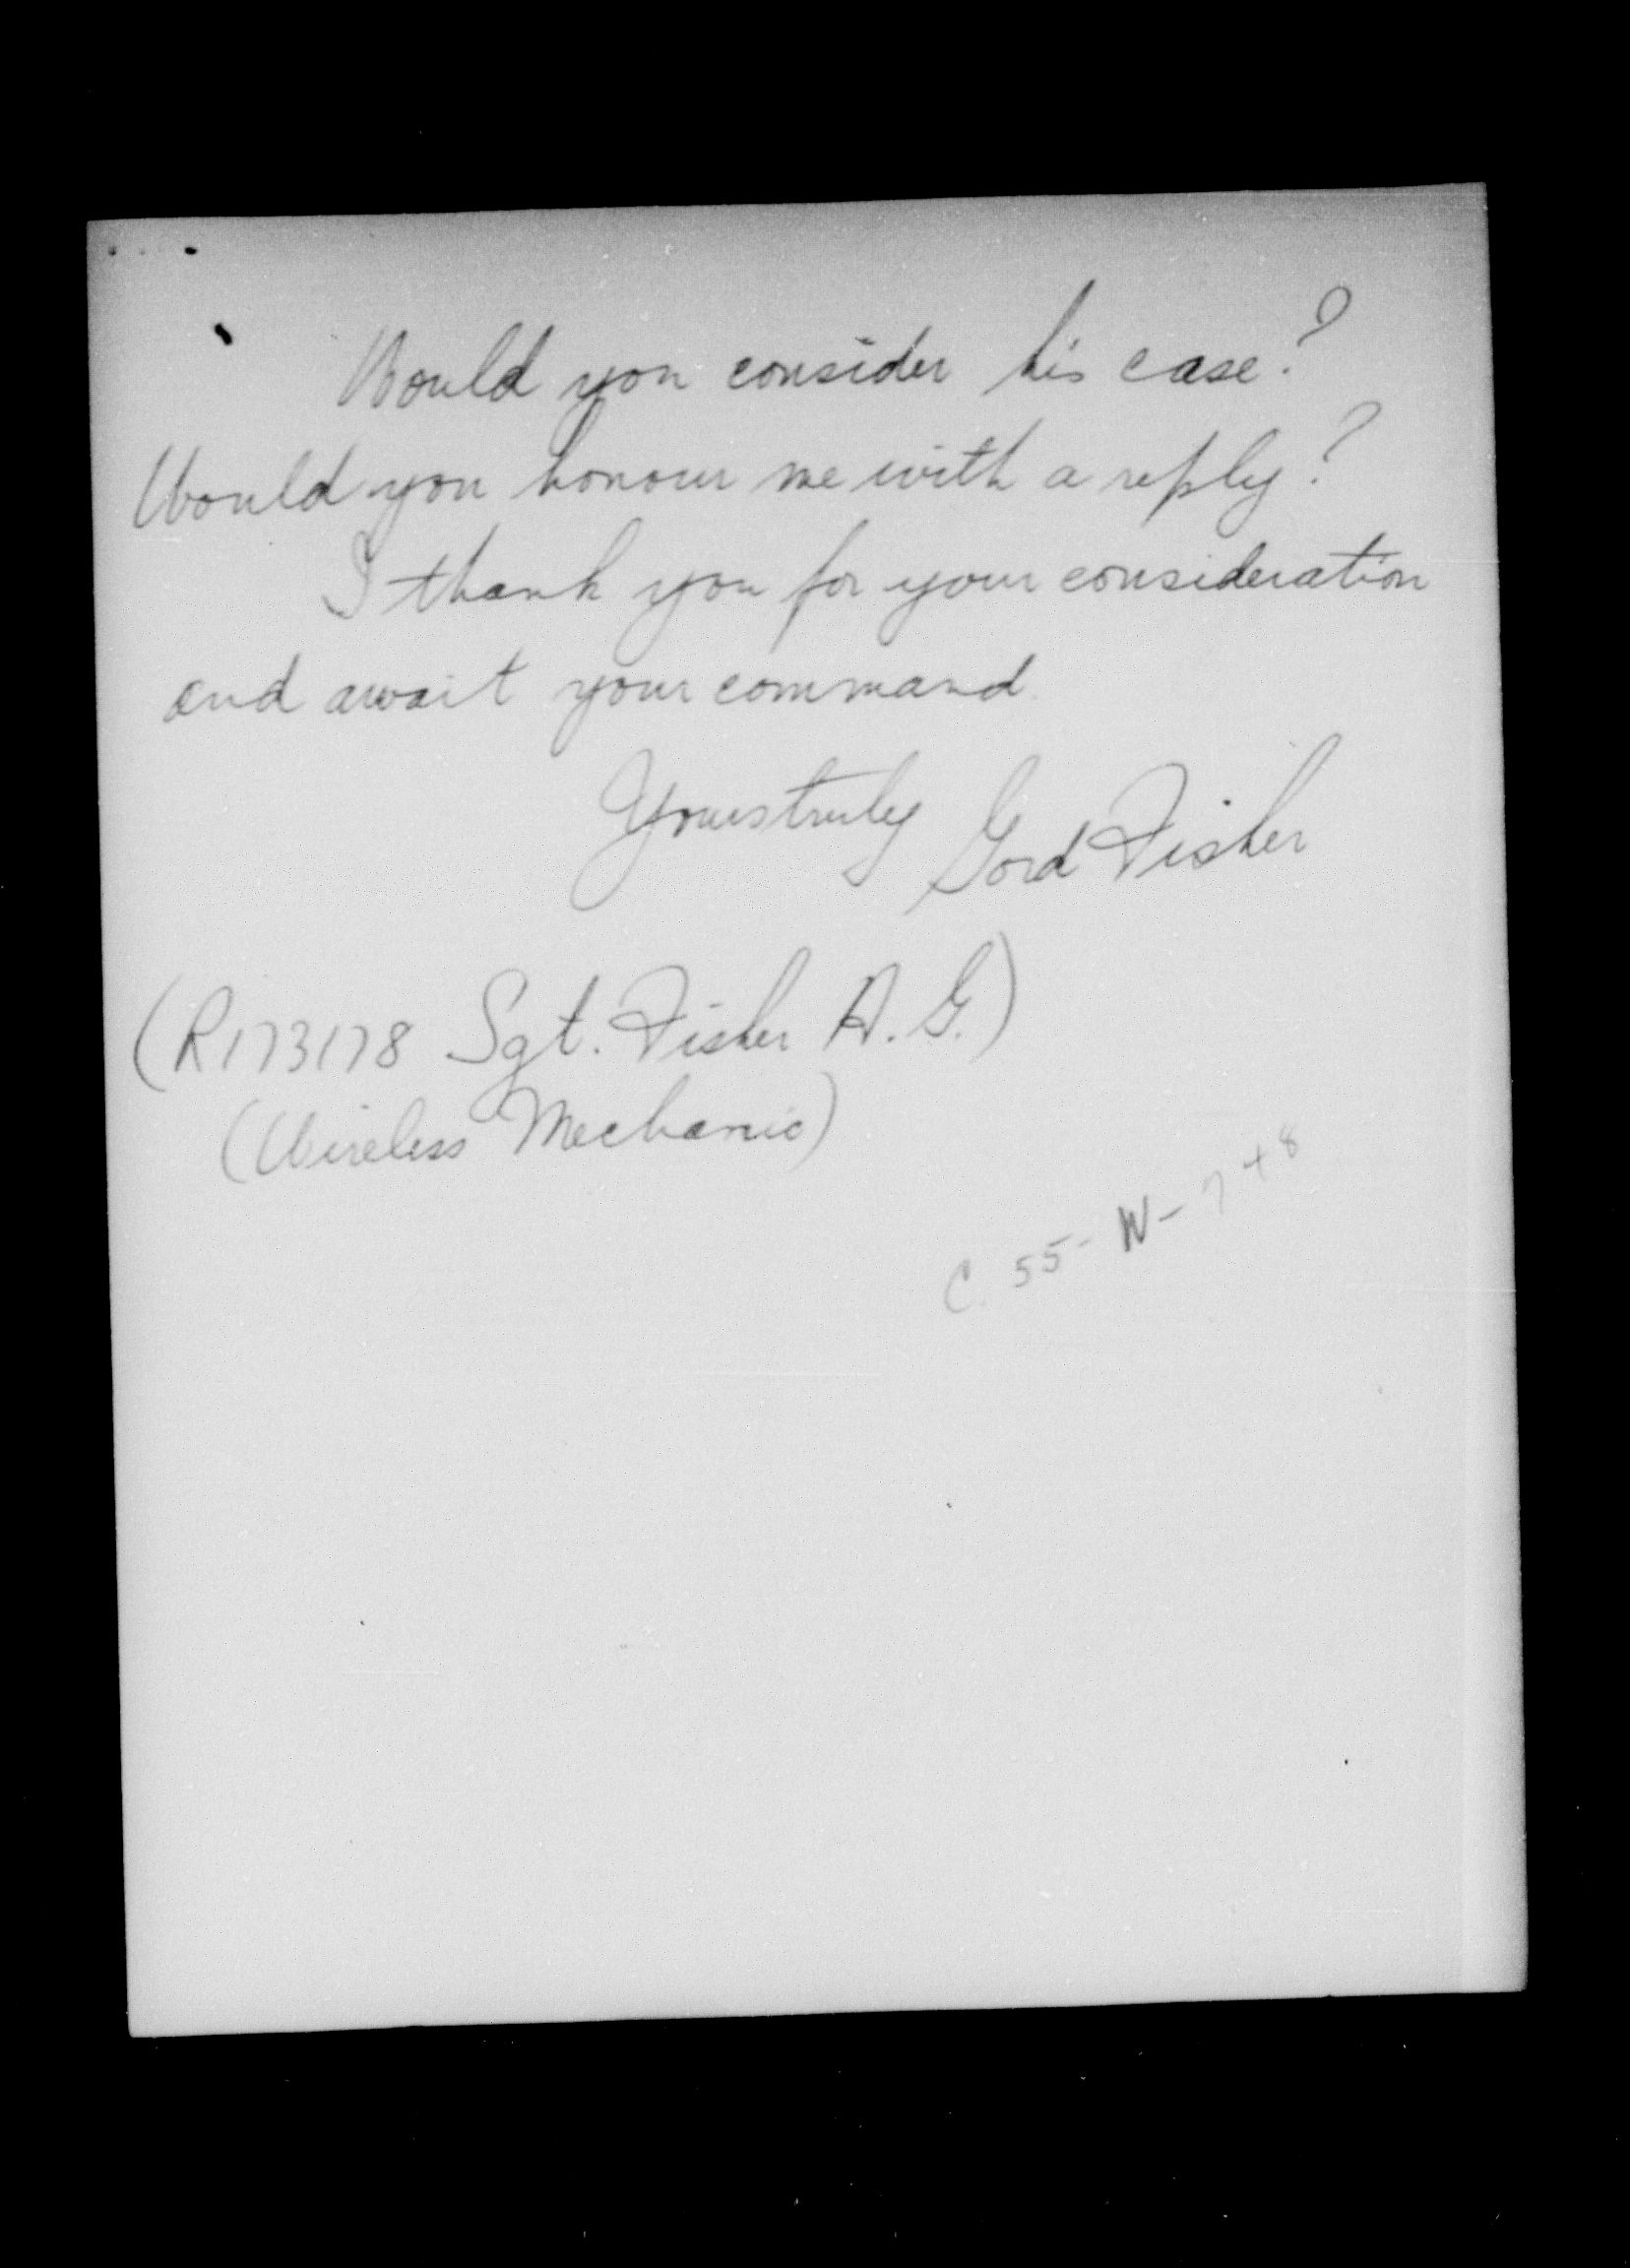 Would you consider his case?
Would you honour me with a reply?
I thank you for your consideration
and await your command.
Yours truly Gord Fisher
(R173178 Sgt. Fisher A. G.)
(Wireless Mechanic)
C. 55- W- 7 + 8